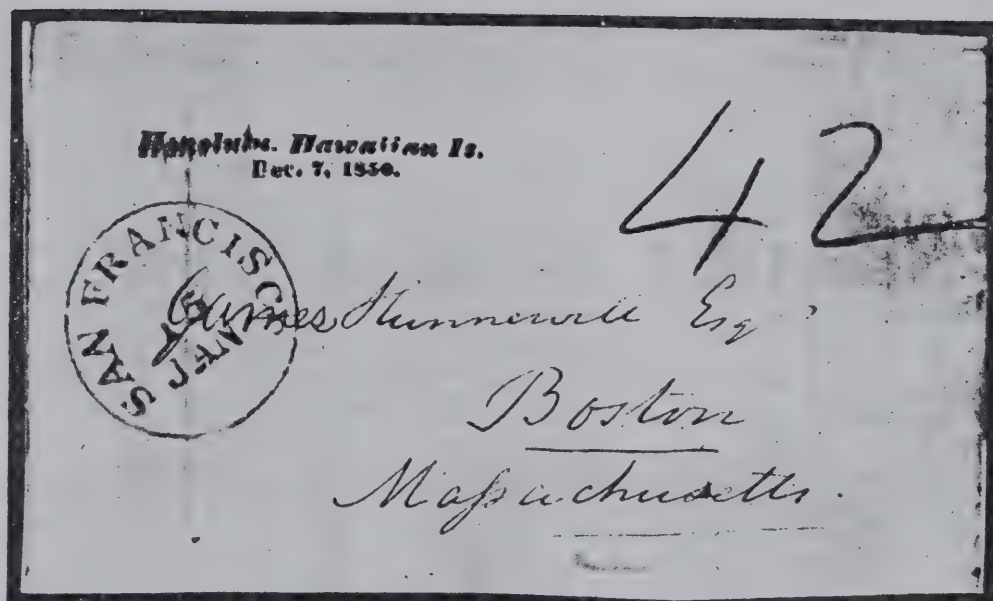 42
Honolulu. Hawaiian Is.
Dec. 7, 1850.
SAN FRANCISCO
JAN
James Hunnewell Esqr
Boston
Massachusetts.